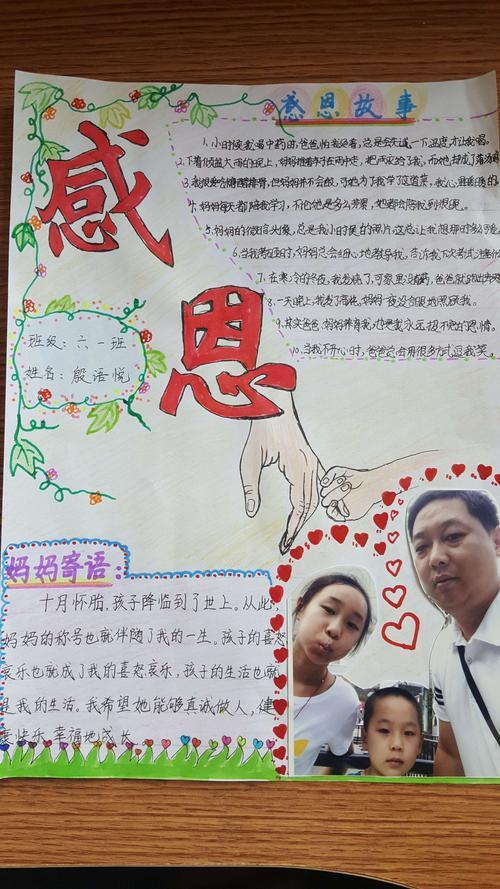 感恩
感恩故事
1、小时候我喝中药时，爸爸怕我觉着，总是会先试一下温度才让我喝。
2、下着倾盆大雨的晚上，妈妈抱着
我很爱吃糖醋排骨，但妈妈并不会做，可她为了我学了这道菜，我心里
4、妈妈每天都陪我学习，不论她是多么劳累，她都会陪我到很晚。
5、妈妈的微信头像，总是我小时候的照片，这总让我想
6、当我考
7、在寒冷的冬夜，我发烧了，可家里没有药，爸爸就
8、一天晚上，我发了高烧，妈妈一夜没合眼地照顾我。
9、其实爸爸、妈妈养育我，也是我永远报不完的恩情。
10、当我不开心时，爸爸总会用很多方式逗我笑。
班级：六一班
姓名：殷语悦
妈妈寄语：
十月怀胎，孩子降临到了世上。从此，
妈妈的称号也就伴随了我的一生。孩子的喜怒
哀乐也就成了我的喜怒哀乐，孩子的生活也就
是我的生活。我希望她能够真诚做人，健
康快乐幸福地成长